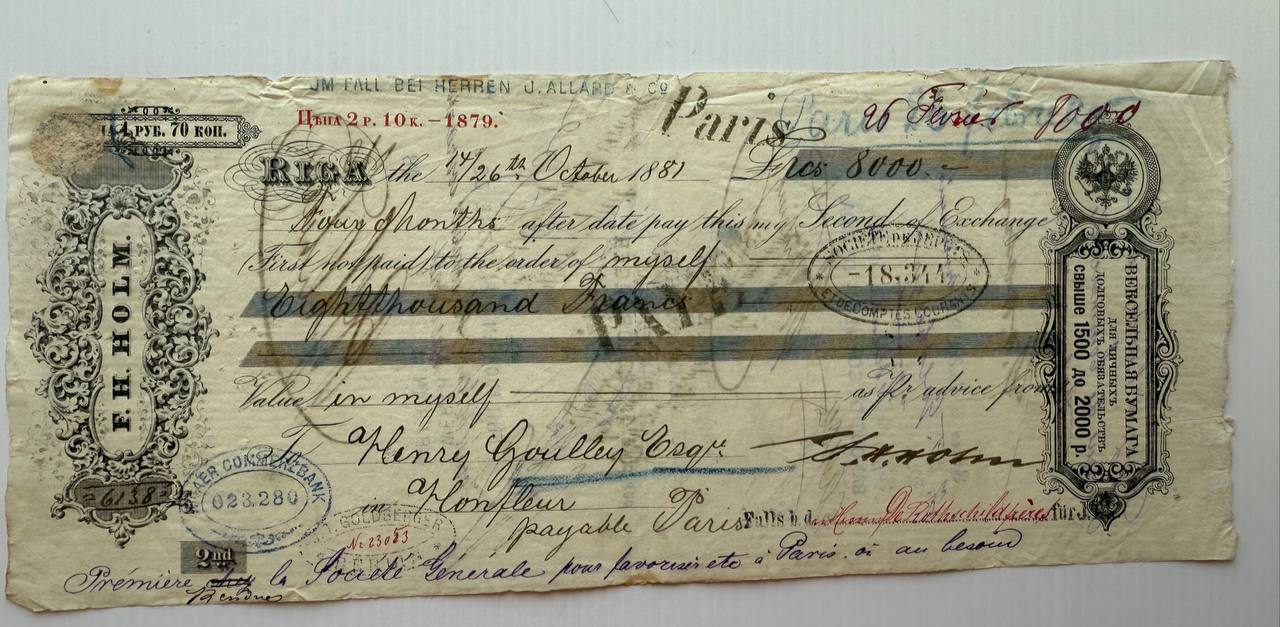 IM FALL BEI HERREN J. ALLARD & Co
1 РУБ. 70 КОП.
Цѣна 2 р. 10 к. – 1879.
Paris
26 Février 8000
RIGA the 14/26th October 1881 Frcs 8000.–
Four Months after date pay this my Second of Exchange
First not paid, to the order of myself
Eight thousand Francs
PAYÉ
SOCIÉTÉ DE DÉPOTS
-18.344
ET DE COMPTES COURANTS
Value in myself as pr advice from
To Henry Goulley Esqre.
F. H. Holm
in Honfleur
payable Paris
Falls b. d. Herren De Rothschild frères für J.
F. H. HOLM.
=6138=
COMMERZBANK
023.280
GOLDBERGER
No 23053
2nd
Première chez la Société Générale pour favoriser etc à Paris. où au besoin
ВЕКСЕЛЬНАЯ БУМАГА
ДЛЯ ЛИЧНЫХЪ
ДОЛГОВЫХЪ ОБЯЗАТЕЛЬСТВЪ
свыше 1500 до 2000 р.